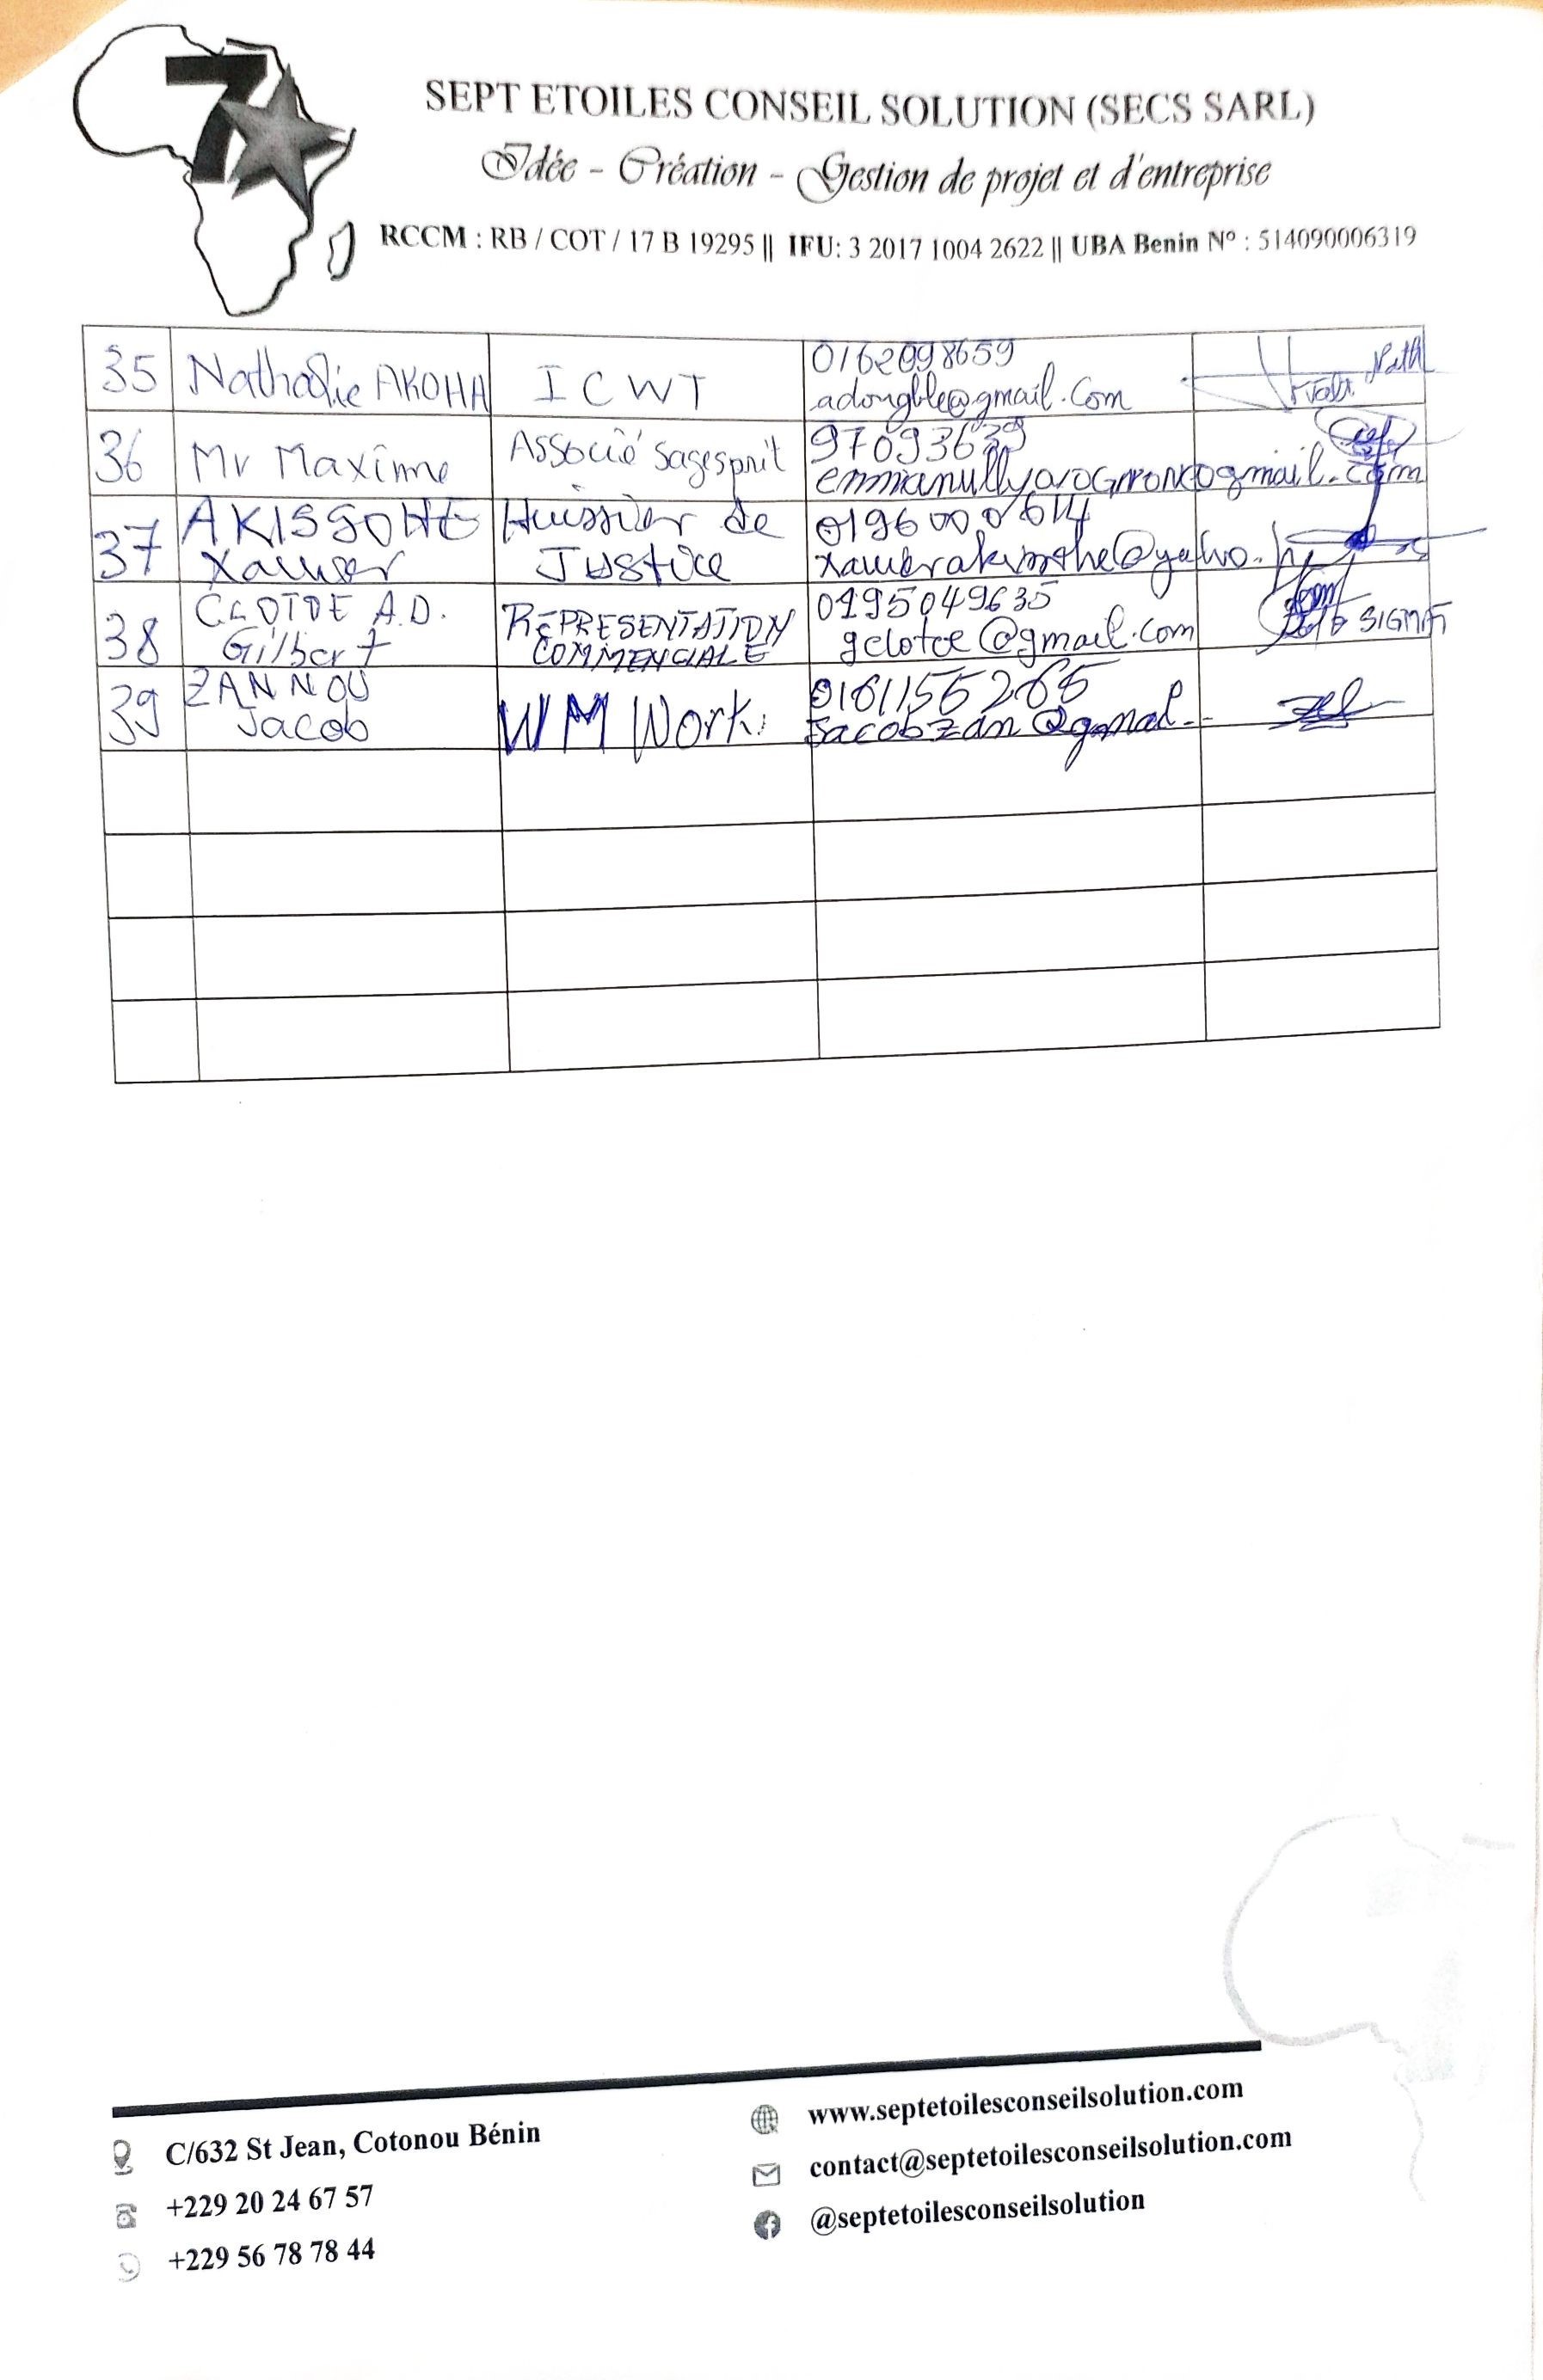 7
SEPT ETOILES CONSEIL SOLUTION (SECS SARL)
Idée - Création - Gestion de projet et d'entreprise
RCCM : RB / COT / 17 B 19295 || IFU: 3 2017 1004 2622 || UBA Benin N° : 514090006319
35 Nathalie AKOHA I C W T 0162098659
adongble@gmail.com
36 Mr Maxime Associé Sagesprit 97093639
@gmail.com
37 AKISSOHE Huissier de 0196000614
Xavier Justice
38 CLOTOE A.D. REPRESENTATION 0195049635
Gilbert COMMENCIALE gclotoe@gmail.com SIGMA
39 ZANNOU WM Work. 0161155265
Jacob Jacobzan@gmail
C/632 St Jean, Cotonou Bénin
+229 20 24 67 57
+229 56 78 78 44
www.septetoilesconseilsolution.com
contact@septetoilesconseilsolution.com
@septetoilesconseilsolution